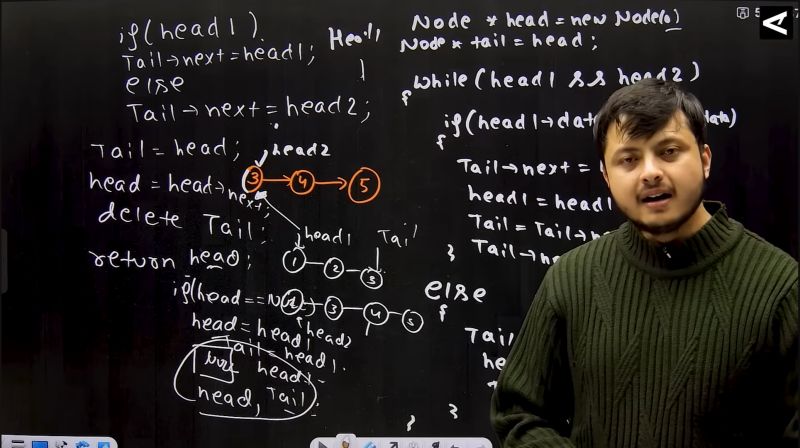 if(head1)
Tail→next=head1;
else
Tail→next=head2;
Tail=head;
head=head→next;
delete Tail;
return head;
if(head==NULL)
head=head1
Tail=head1.
head1
head, Tail.
Head1
head2
3 4 5
head1
Tail
1 2 3
3 4 5
head2
Node *head=new Node(0)
Node* tail=head;
while(head1 && head2)
{
if(head1→data
{
Tail→next=
head1=head1
Tail=Tail→
Tail→
}
else
{
Tail
}
}